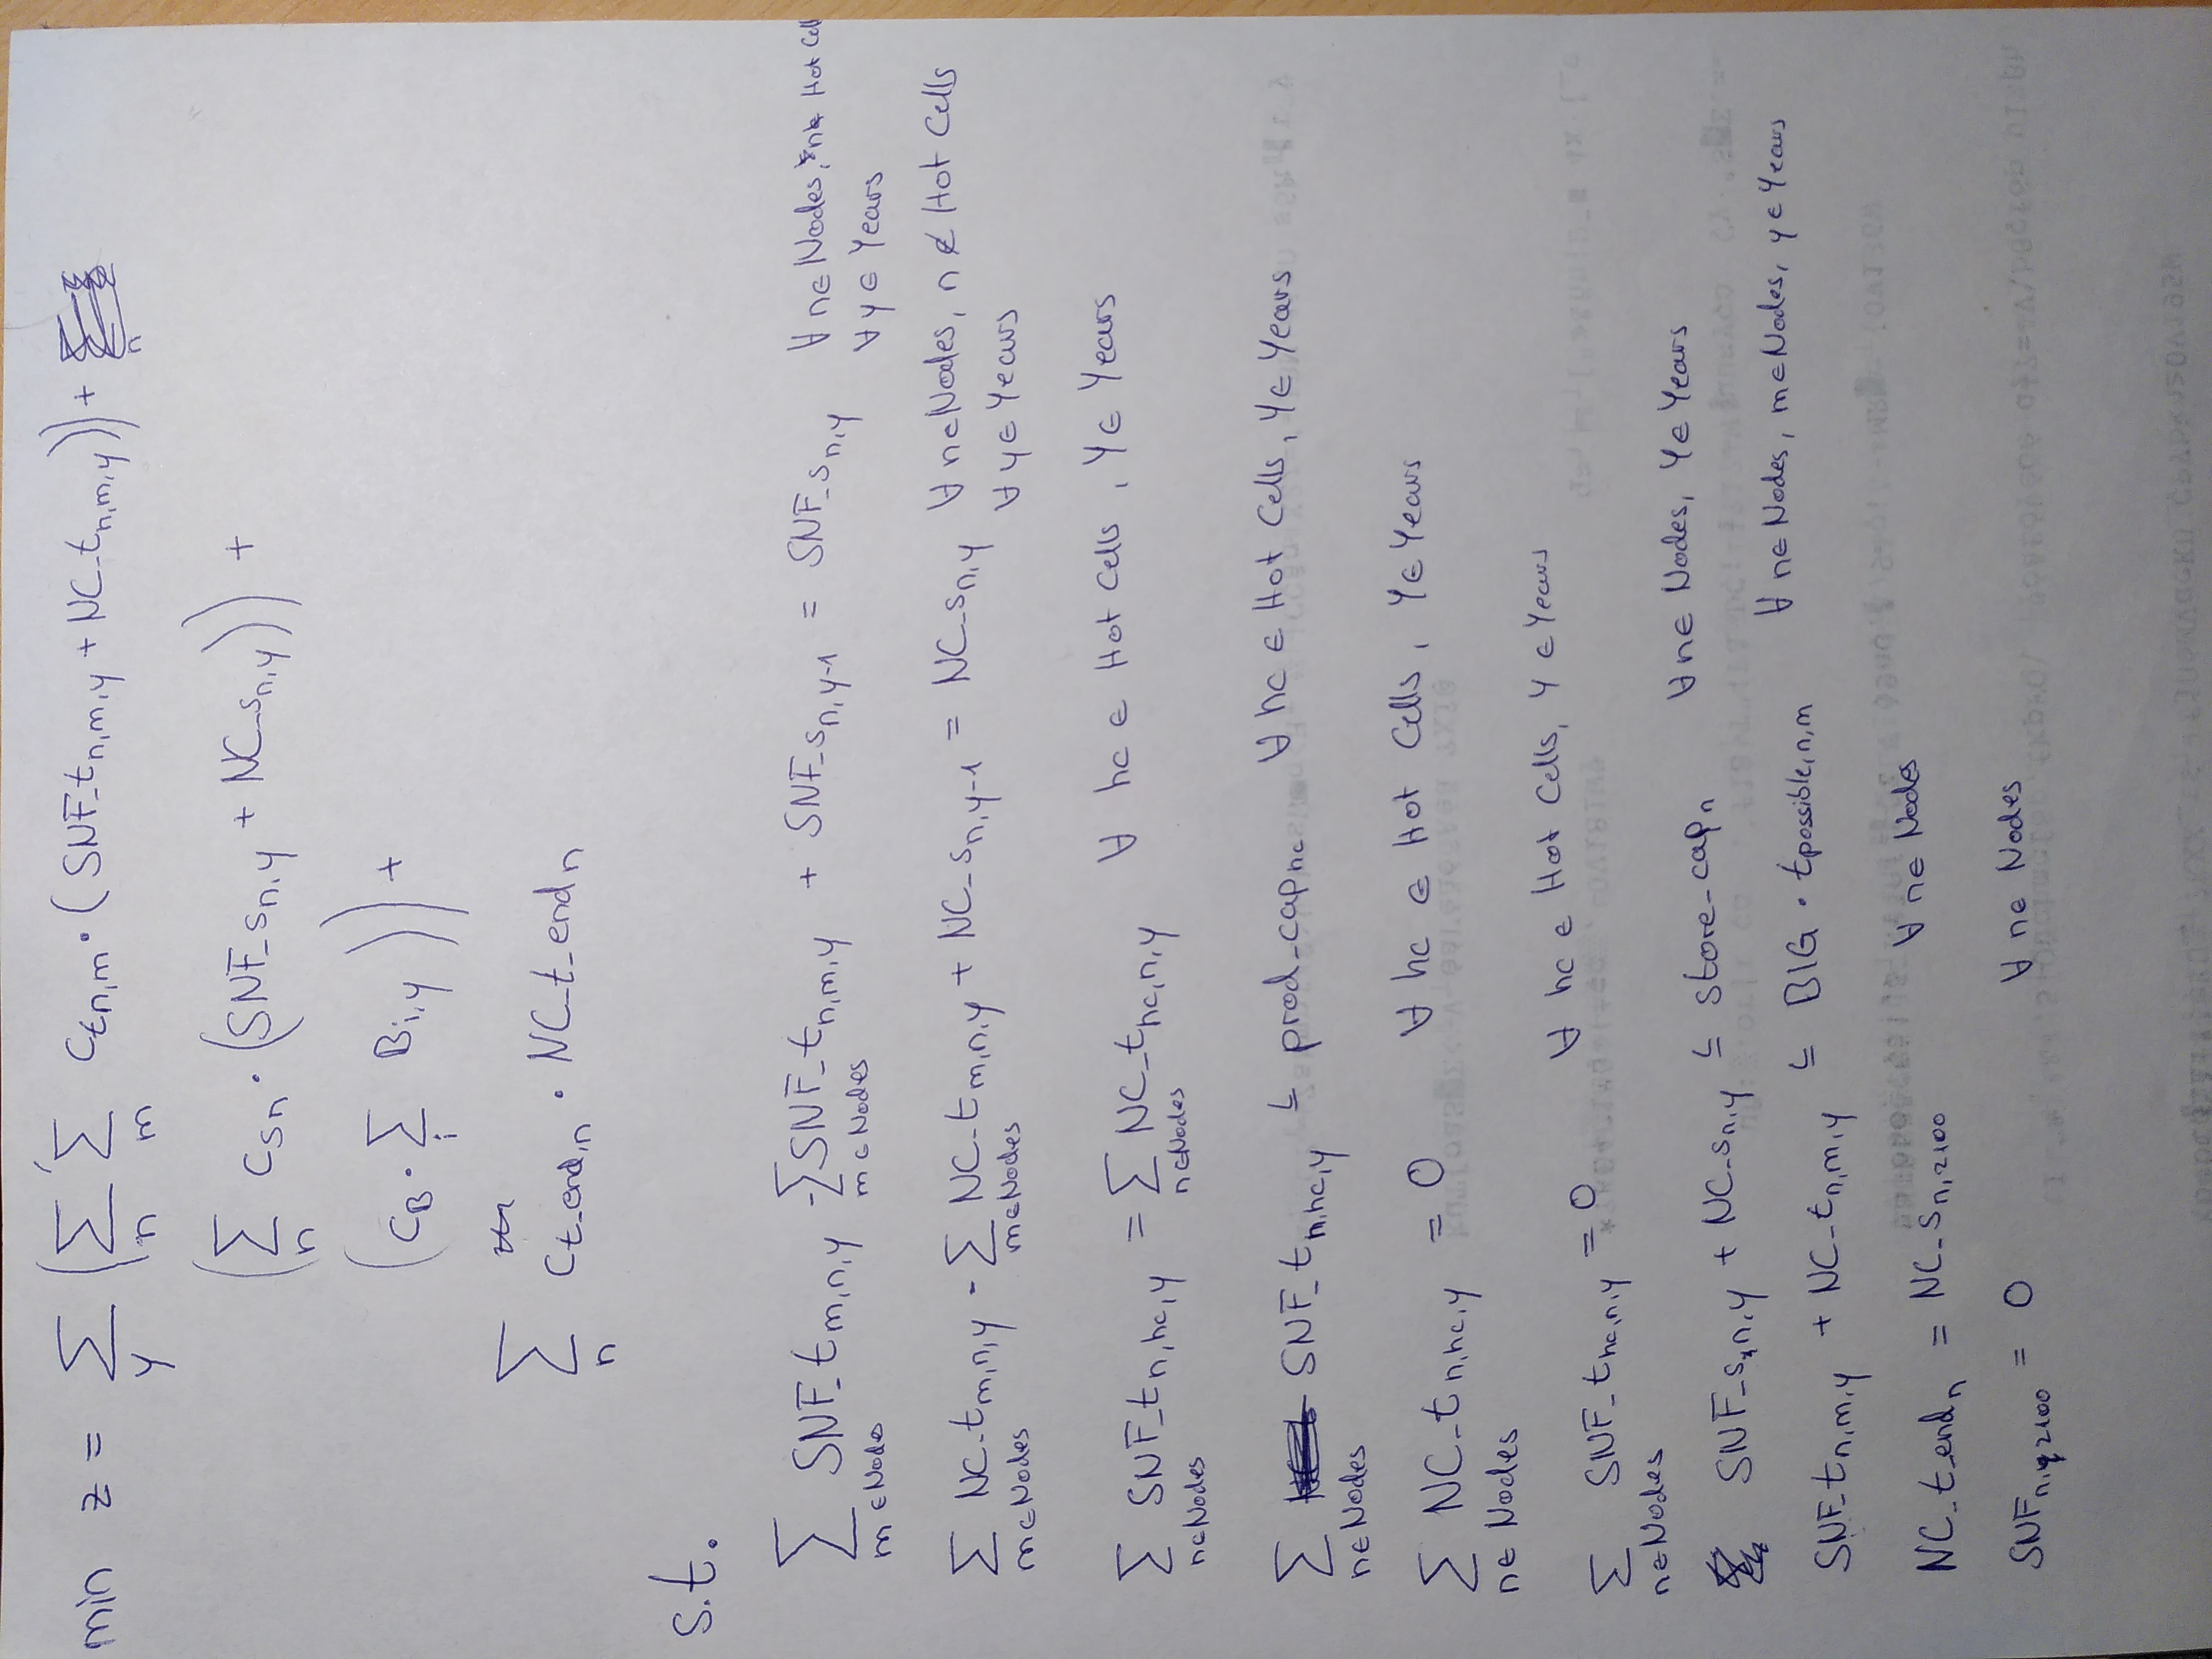 min z = ∑_y (∑_n ∑_m c_{t n,m} · (SNF_t_{n,m,y} + NC_t_{n,m,y})) +
(∑_n c_{s n} · (SNF_s_{n,y} + NC_s_{n,y})) +
(c_B · ∑_i B_{i,y})) +
∑_n c_{t_end,n} · NC_t_end_n
s.t.
∑_{m∈Node} SNF_t_{m,n,y} - ∑_{m∈Nodes} SNF_t_{n,m,y} + SNF_s_{n,y-1} = SNF_s_{n,y} ∀ n∈Nodes, n∉ Hot Cell
∀ y ∈ Years
∑_{m∈Nodes} NC_t_{m,n,y} - ∑_{m∈Nodes} NC_t_{m,n,y} + NC_s_{n,y-1} = NC_s_{n,y} ∀ n∈Nodes, n ∉ Hot Cells
∀ y ∈ Years
∑_{n∈Nodes} SNF_t_{n,hc,y} = ∑_{n∈Nodes} NC_t_{hc,n,y} ∀ hc ∈ Hot Cells, y ∈ Years
∑_{n∈Nodes} SNF_t_{n,hc,y} ≤ prod_cap_{hc} ∀ hc ∈ Hot Cells, y ∈ Years
∑_{n∈Nodes} NC_t_{n,hc,y} = 0 ∀ hc ∈ Hot Cells, y ∈ Years
∑_{n∈Nodes} SNF_t_{hc,n,y} = 0 ∀ hc ∈ Hot Cells, y ∈ Years
SNF_s_{n,y} + NC_s_{n,y} ≤ store_cap_n ∀ n∈ Nodes, y ∈ Years
SNF_t_{n,m,y} + NC_t_{n,m,y} ≤ BIG · t_{possible,n,m} ∀ n∈ Nodes, m∈Nodes, y∈Years
NC_t_end_n = NC_s_{n,2100} ∀ n∈ Nodes
SNF_{n,2100} = 0 ∀ n∈ Nodes